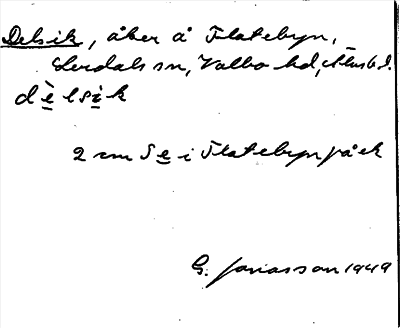 Delsik, åker å Flatebyn,
Lerdals sn, Valbo hd, Älvsb l.
dèlsik
2 cm S e i Flatebyn på ek
G. Jonasson 1949